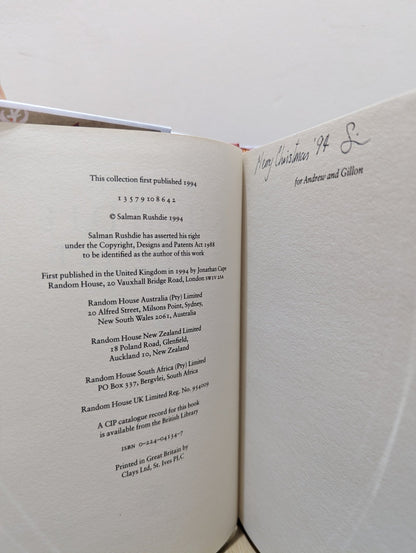 This collection first published 1994
1 3 5 7 9 10 8 6 4 2
© Salman Rushdie 1994
Salman Rushdie has asserted his right
under the Copyright, Designs and Patents Act 1988
to be identified as the author of this work
First published in the United Kingdom in 1994 by Jonathan Cape
Random House, 20 Vauxhall Bridge Road, London SW1V 2SA
Random House Australia (Pty) Limited
20 Alfred Street, Milsons Point, Sydney,
New South Wales 2061, Australia
Random House New Zealand Limited
18 Poland Road, Glenfield,
Auckland 10, New Zealand
Random House South Africa (Pty) Limited
PO Box 337, Bergvlei, South Africa
Random House UK Limited Reg. No. 954009
A CIP catalogue record for this book
is available from the British Library
ISBN 0-224-04134-7
Printed in Great Britain by
Clays Ltd, St. Ives PLC
Merry Christmas '94
for Andrew and Gillon